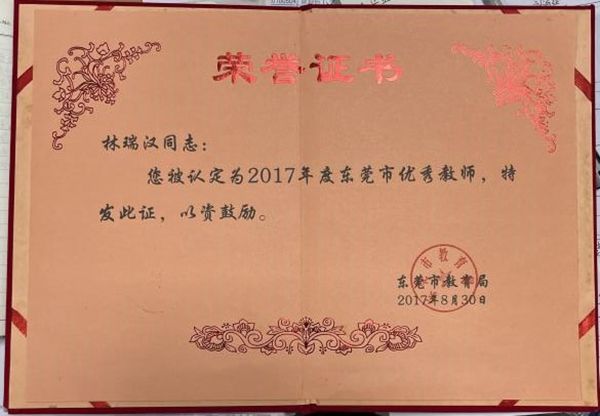 荣誉证书
林瑞汉同志：
您被认定为2017年度东莞市优秀教师，特
发此证，以资鼓励。
市教育
东莞市教育局
2017年8月30日